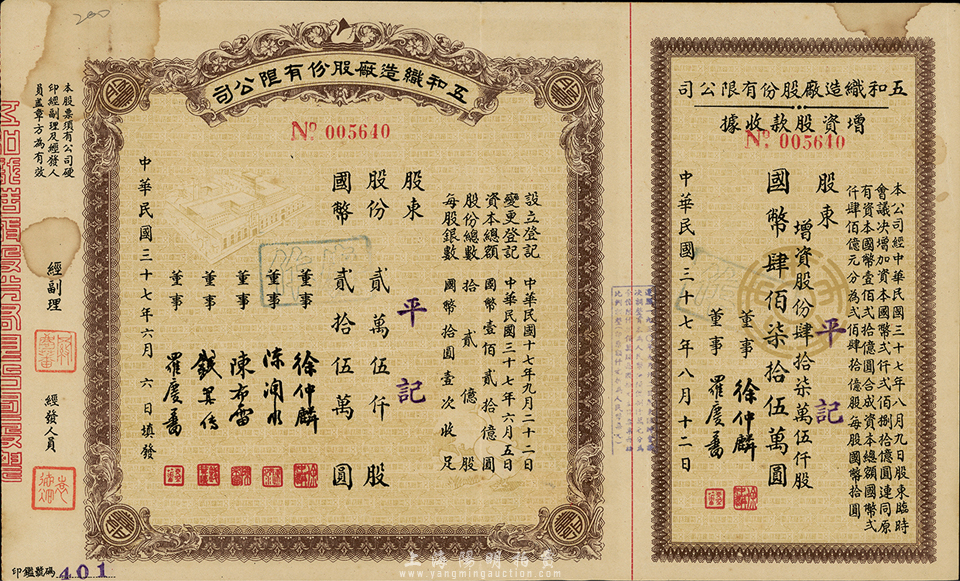 五和織造廠股份有限公司
增資股款收據
Nº 005640
本公司經中華民國三十七年八月九日股東臨時
會議決增加資本國幣弍仟弍佰捌拾億圓連同原
有資本國幣壹佰弍拾億圓合成資本總額國幣弍
仟肆佰億元分為弍佰肆拾億股每股國幣拾圓
股東 平記
增資股份肆拾柒萬伍仟股
國幣肆佰柒拾伍萬圓
董事 徐仲麟
董事 羅慶蕃
中華民國三十七年八月十二日
五和織造廠股份有限公司
Nº 005640
設立登記 中華民國十七年九月二十二日
變更登記 中華民國三十七年六月五日
資本總額 國幣壹佰貳拾億圓
股份總數 拾貳億股
每股銀數 國幣拾圓壹次收足
股東 平記
股份 貳萬伍仟股
國幣 貳拾伍萬圓
董事 徐仲麟
董事
董事 陳布雷
董事
董事 羅慶蕃
中華民國三十七年六月六日填發
本股票須有公司硬
印經副理及經發人
員蓋章方為有效
經副理
經發人員
印鑑號碼 401
200
上海陽明拍賣
www.yangmingauction.com